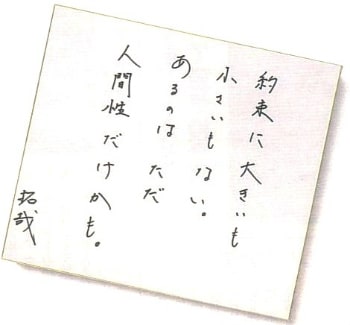 約束に大きいも
小さいもない。
あるのはただ
人間性だけかも。
拓哉